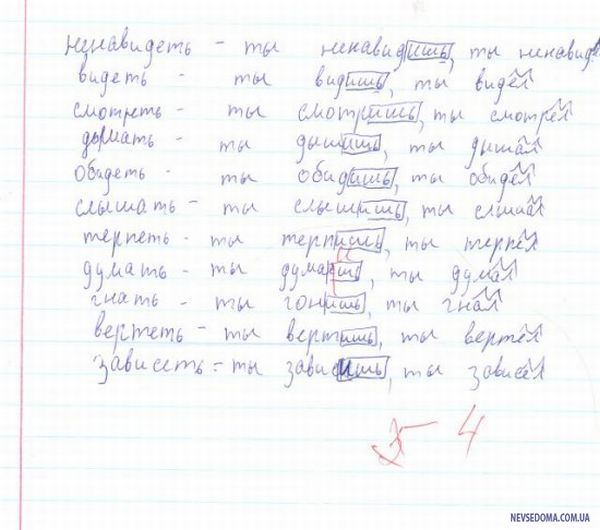 ненавидеть - ты ненавидишь, ты ненавиде
видеть - ты видишь, ты видел
смотреть - ты смотришь, ты смотрел
дымать - ты дышишь, ты дышал
обидеть - ты обидишь, ты обидел
слышать - ты слышишь, ты слшал
терпеть - ты терпишь, ты терпел
думать - ты думаешь, ты думал
гнать - ты гонишь, ты гнал
вертеть - ты вертишь, ты вертел
зависеть - ты зависишь, ты зависел
4
NEVSEDOMA.COM.UA